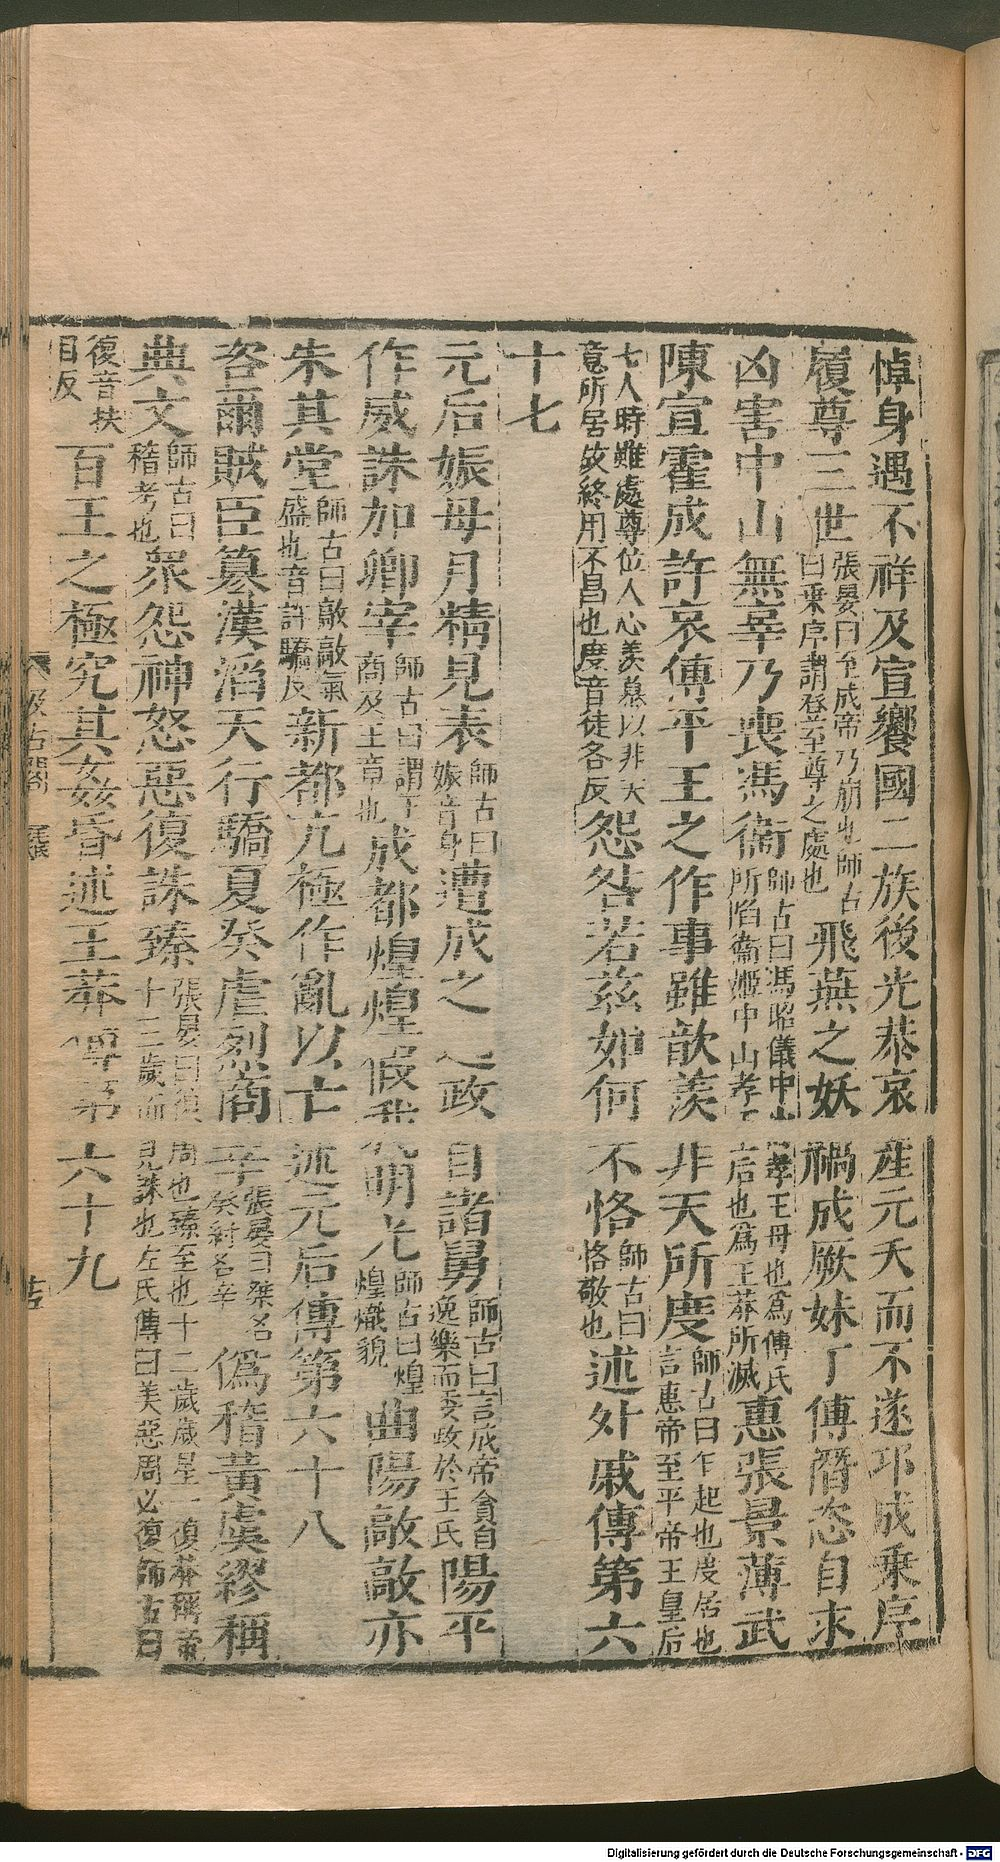 悼身遇不祥及宣饗國二族後光恭哀產元夭而不遂邛成乗序
履尊三世張晏曰至成帝乃崩也師古曰乗序謂登至尊之處也飛燕之妖禍成厥妹丁傅僭恣自求
凶害中山無辜乃喪馮衞師古曰馮昭儀中山孝王母也爲傅氏所陷衞姬中山孝王后也爲王莽所滅惠張景薄武
陳宣霍成許哀傅平王之作事雖歆羨非天所度師古曰乍起也度居也言惠帝至平帝王皇后
七人時雖處尊位人心羨慕以非天意所居故終用不昌也度音徒各反怨咎若茲如何不恪師古曰恪敬也述外戚傳第六
十七
元后娠母月精見表師古曰娠音身遭成之逸政自諸舅師古曰言成帝貪自逸樂而委政於王氏陽平
作威誅加卿宰師古曰謂王商及王章也成都煌煌假我明光師古曰煌煌熾貌曲陽歊歊亦
朱其堂師古曰歊歊氣盛也音許驕反新都亢極作亂以亡述元后傳第六十八
咨爾賊臣篡漢滔天行驕夏癸虐烈商辛張晏曰桀名癸紂名辛僞稽黃虞繆稱
典文師古曰稽考也衆怨神怒惡復誅臻張晏曰復周也臻至也十二歲歲星一復莽稱帝十三歲而見誅也左氏傳曰美惡周必復師古曰
復音扶目反百王之極究其姦昏述王莽傳第六十九
汲古閣
Digitalisierung gefördert durch die Deutsche Forschungsgemeinschaft - DFG